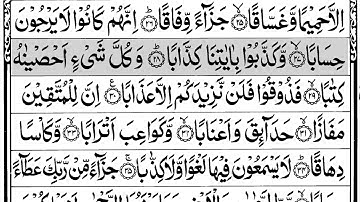 اِلَّا حَمِيْمًا وَّغَسَّاقًا ﴿۲۵﴾ جَزَآءً وِّفَاقًا ﴿۲۶﴾ اِنَّهُمْ كَانُوْا لَا يَرْجُوْنَ
حِسَابًا ﴿۲۷﴾ وَّكَذَّبُوْا بِاٰيٰتِنَا كِذَّابًا ﴿۲۸﴾ وَكُلَّ شَىْءٍ اَحْصَيْنٰهُ
كِتٰبًا ﴿۲۹﴾ فَذُوْقُوْا فَلَنْ نَّزِيْدَكُمْ اِلَّا عَذَابًا ﴿۳۰﴾ اِنَّ لِلْمُتَّقِيْنَ
مَفَازًا ﴿۳۱﴾ حَدَآئِقَ وَاَعْنَابًا ﴿۳۲﴾ وَّكَوَاعِبَ اَتْرَابًا ﴿۳۳﴾ وَّكَاْسًا
دِهَاقًا ﴿۳۴﴾ لَا يَسْمَعُوْنَ فِيْهَا لَغْوًا وَّلَا كِذّٰبًا ﴿۳۵﴾ جَزَآءً مِّنْ رَّبِّكَ عَطَآءً